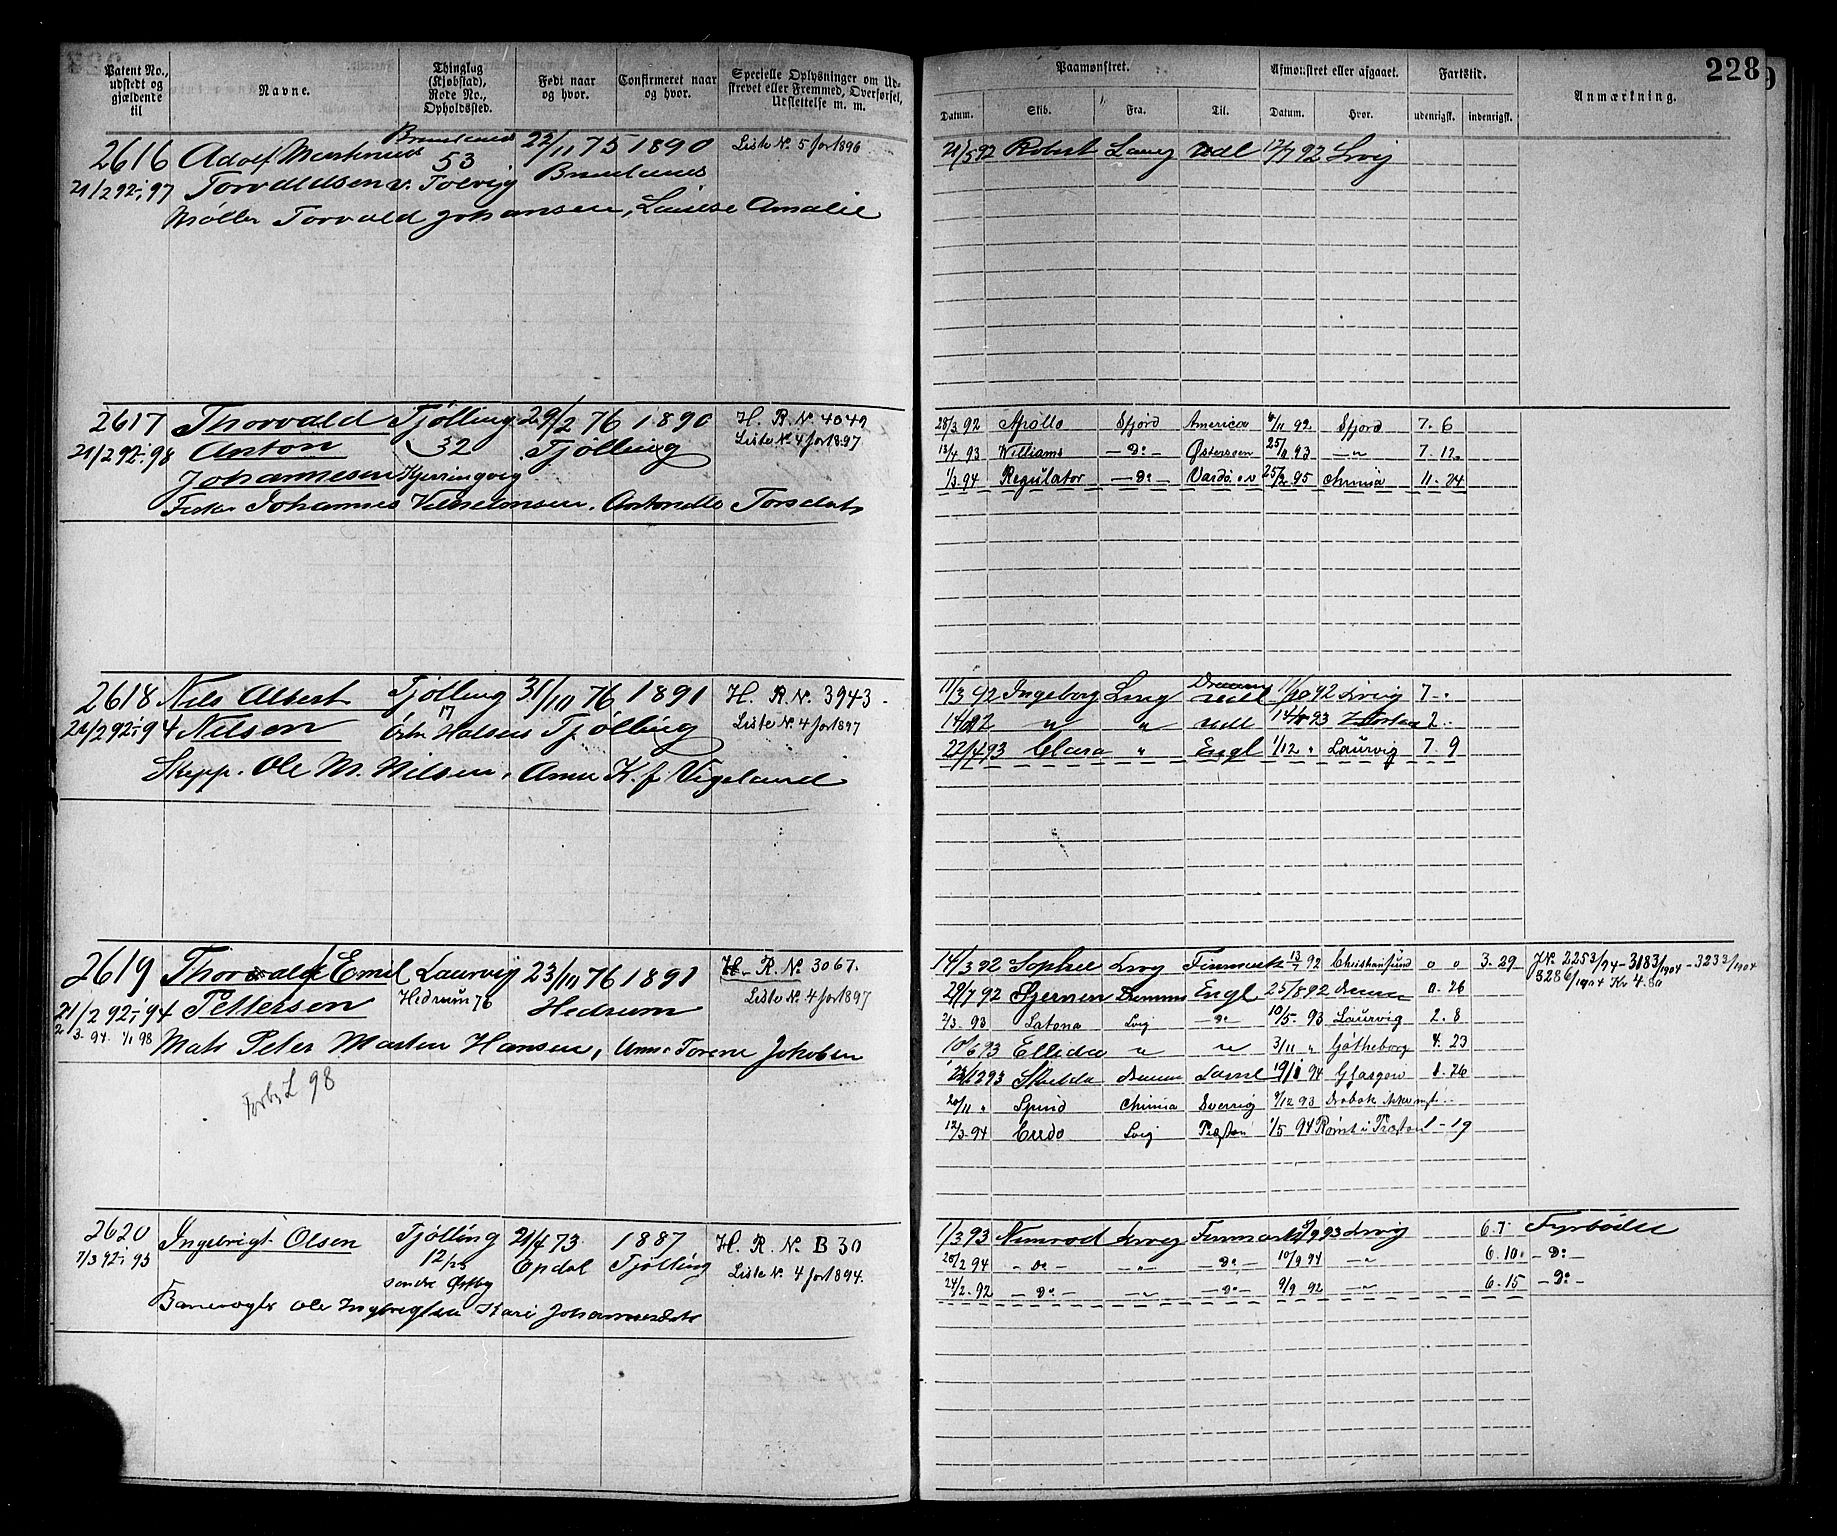 228
Patent No., udstedt og gjældende til
Navne.
Thinglag (Kjøbstad), Rode No., Opholdssted.
Født naar og hvor.
Confirmeret naar og hvor.
Specielle Oplysninger om Udskrevet eller Fremmed, Overførsel, Udslettelse m. m.
Paamønstret.
Afmønstret eller afgaaet.
Fartstid.
Anmærkning.
Datum. Skib. Fra. Til. Datum. Hvor. udenrigsk. indenrigsk.
2616 Adolf Martinius Brunlanes 22/11 75 1890 Liste No. 5 for 1896
53
21/2 92-97 Torvaldsen v. Tolvig Brunlanes
Møller Torvald Johansen, Louise Amalie
21/5 92 Robert Laurv Udl 12/11 92 Lrvig
2617 Thorvald Tjølling 29/2 76 1890 H. R. No. 4049
21/2 92-98 Anton 32 Tjølling Liste No. 4 for 1897
Johannesen Kjerringvig
Fisker Johannes Vilhelmsen, Torsdatr
28/3 92 Apollo Sfjord America 11 92. Sfjord 7. 6
12/4 93 Williams - Do - Østersøen 25/11 93 - " 7. 12
1/3 94 Regulator - Do - Vardø 25/2 95 Chria 11. 24
2618 Nils Albert Tjølling 31/10 76 1891 H. R. No. 3943
17
21/2 92-94 Nilsen Østre Halsen Tjølling Liste No. 4 for 1897
Skipp. Ole M. Nilsen, Anne K. f. Vigeland
11/3 92 Ingeborg Lrvig Udl 92 Lrvig 7. "
" " Udl 93 2. "
22/4 93 Clara " Engl 1/12 " Laurvig 7. 9
2619 Thorvald Emil Laurvig 23/10 76 1891 H. R. No. 3067.
21/2 92-94 Pettersen Hedrum 76 Hedrum Liste No. 4 for 1897
2/3. 94. 1/1 98 Mats Peter Martin Hansen, Anne Jakobsen
L 98
14/3 92 Sophie Lrvig Finmark 13/7 92 Christiansund " " 3. 29 J.No. 2253/94 - 3183/1904 - 3233/1904
29/7 92 Stjernen Dramm Engl 25/8 92 Dramm 0. 26 8286/1904 Kr 4.80
2/3. 93 Latona Lvig - Do - 10/5. 93 Laurvig 2. 8
10/6 93 Ellida " " 3/11 " Gøtheborg 4. 23
Dramm 94 Glasgow 1. 26
20/11 " Spind Chria Sverrig 9/12 93 Drøbak
12/3. 94 Lvig Præstø 1/5 94 Rømt i Præstø 1 - 19
2620 Ingebrigt Olsen Tjølling 21/4 73 1887 H. R. No. B 30
7/3 92-95 12/25 Opdal Tjølling Liste No. 4 for 1894.
søndre Østby
Banevogter Ole Ingebrigtsen Kari Johannesdatr
1/3 93 Nimrod Lrvig Finmark 93 Lrvig 6. 7. Fyrbøder
20/2 94 - Do - - " - - Do - 10/9 94 - " 6. 10. - Do -
24/2. 92 - Do - - " - - Do - 9/9 92 - " - 6. 15 - Do -